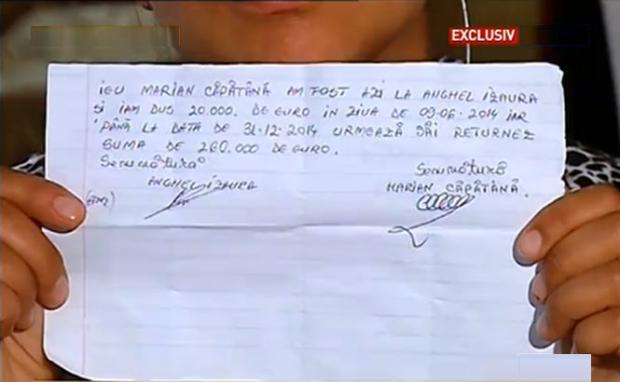 EXCLUSIV
IEU MARIAN CĂPĂTÂNĂ AM FOST AZI LA ANGHEL IZAURA
SI IAM DUS 20.000. DE EURO IN ZIUA DE 09-06-2014 IAR
PÂNĂ LA DATA DE 31-12-2014 URMEAZĂ SĂI RETURNEZ
SUMA DE 260.000 DE EURO.
Semnătura
ANGHEL IZAURA
Semnătură
MARIAN CĂPĂTÂNĂ